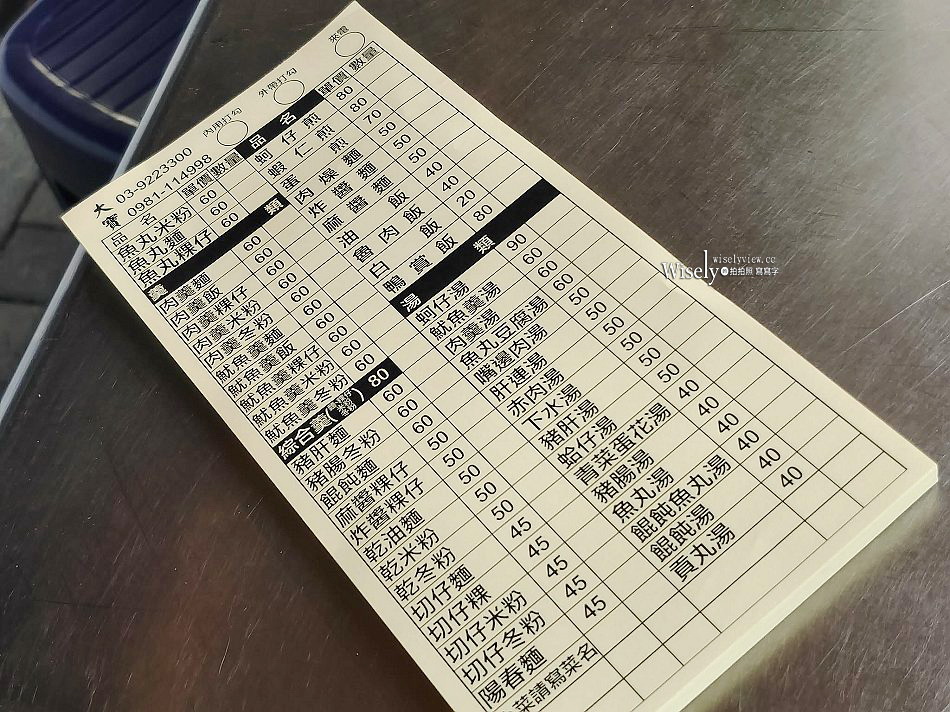 來電
外帶打勾
內用打勾
大寶 03-9223300
0981-114998
品名 單價 數量
魚丸米粉 60
魚丸麵 60
魚丸粿仔 60
羹類
肉羹麵 60
肉羹飯 60
肉羹粿仔 60
肉羹米粉 60
肉羹冬粉 60
魷魚羹麵 60
魷魚羹飯 60
魷魚羹粿仔 60
魷魚羹米粉 60
魷魚羹冬粉 60
綜合羹 80
豬肝麵 60
豬腸冬粉 60
餛飩麵
麻醬粿仔 50
炸醬粿仔 50
乾油麵 50
乾米粉 50
乾冬粉 50
切仔麵 45
切仔粿 45
切仔米粉 45
切仔冬粉 45
陽春麵 45
菜請寫菜名
品名 單價 數量
蚵仔煎 80
蝦仁煎 80
蛋煎 70
肉燥麵 50
炸醬麵 50
麻醬麵 50
油飯 40
魯肉飯 40
白飯 20
鴨賞飯 80
湯類
蚵仔湯 90
魷魚羹湯 60
肉羹湯 60
魚丸豆腐湯 60
嘴邊肉湯 50
肝連湯 50
赤肉湯 50
下水湯 50
豬肝湯 50
蛤仔湯 50
青菜蛋花湯 40
豬腸湯 40
魚丸湯 40
餛飩魚丸湯 40
餛飩湯 40
貢丸湯 40
Wisely wiselyview.cc
拍拍照 寫寫字